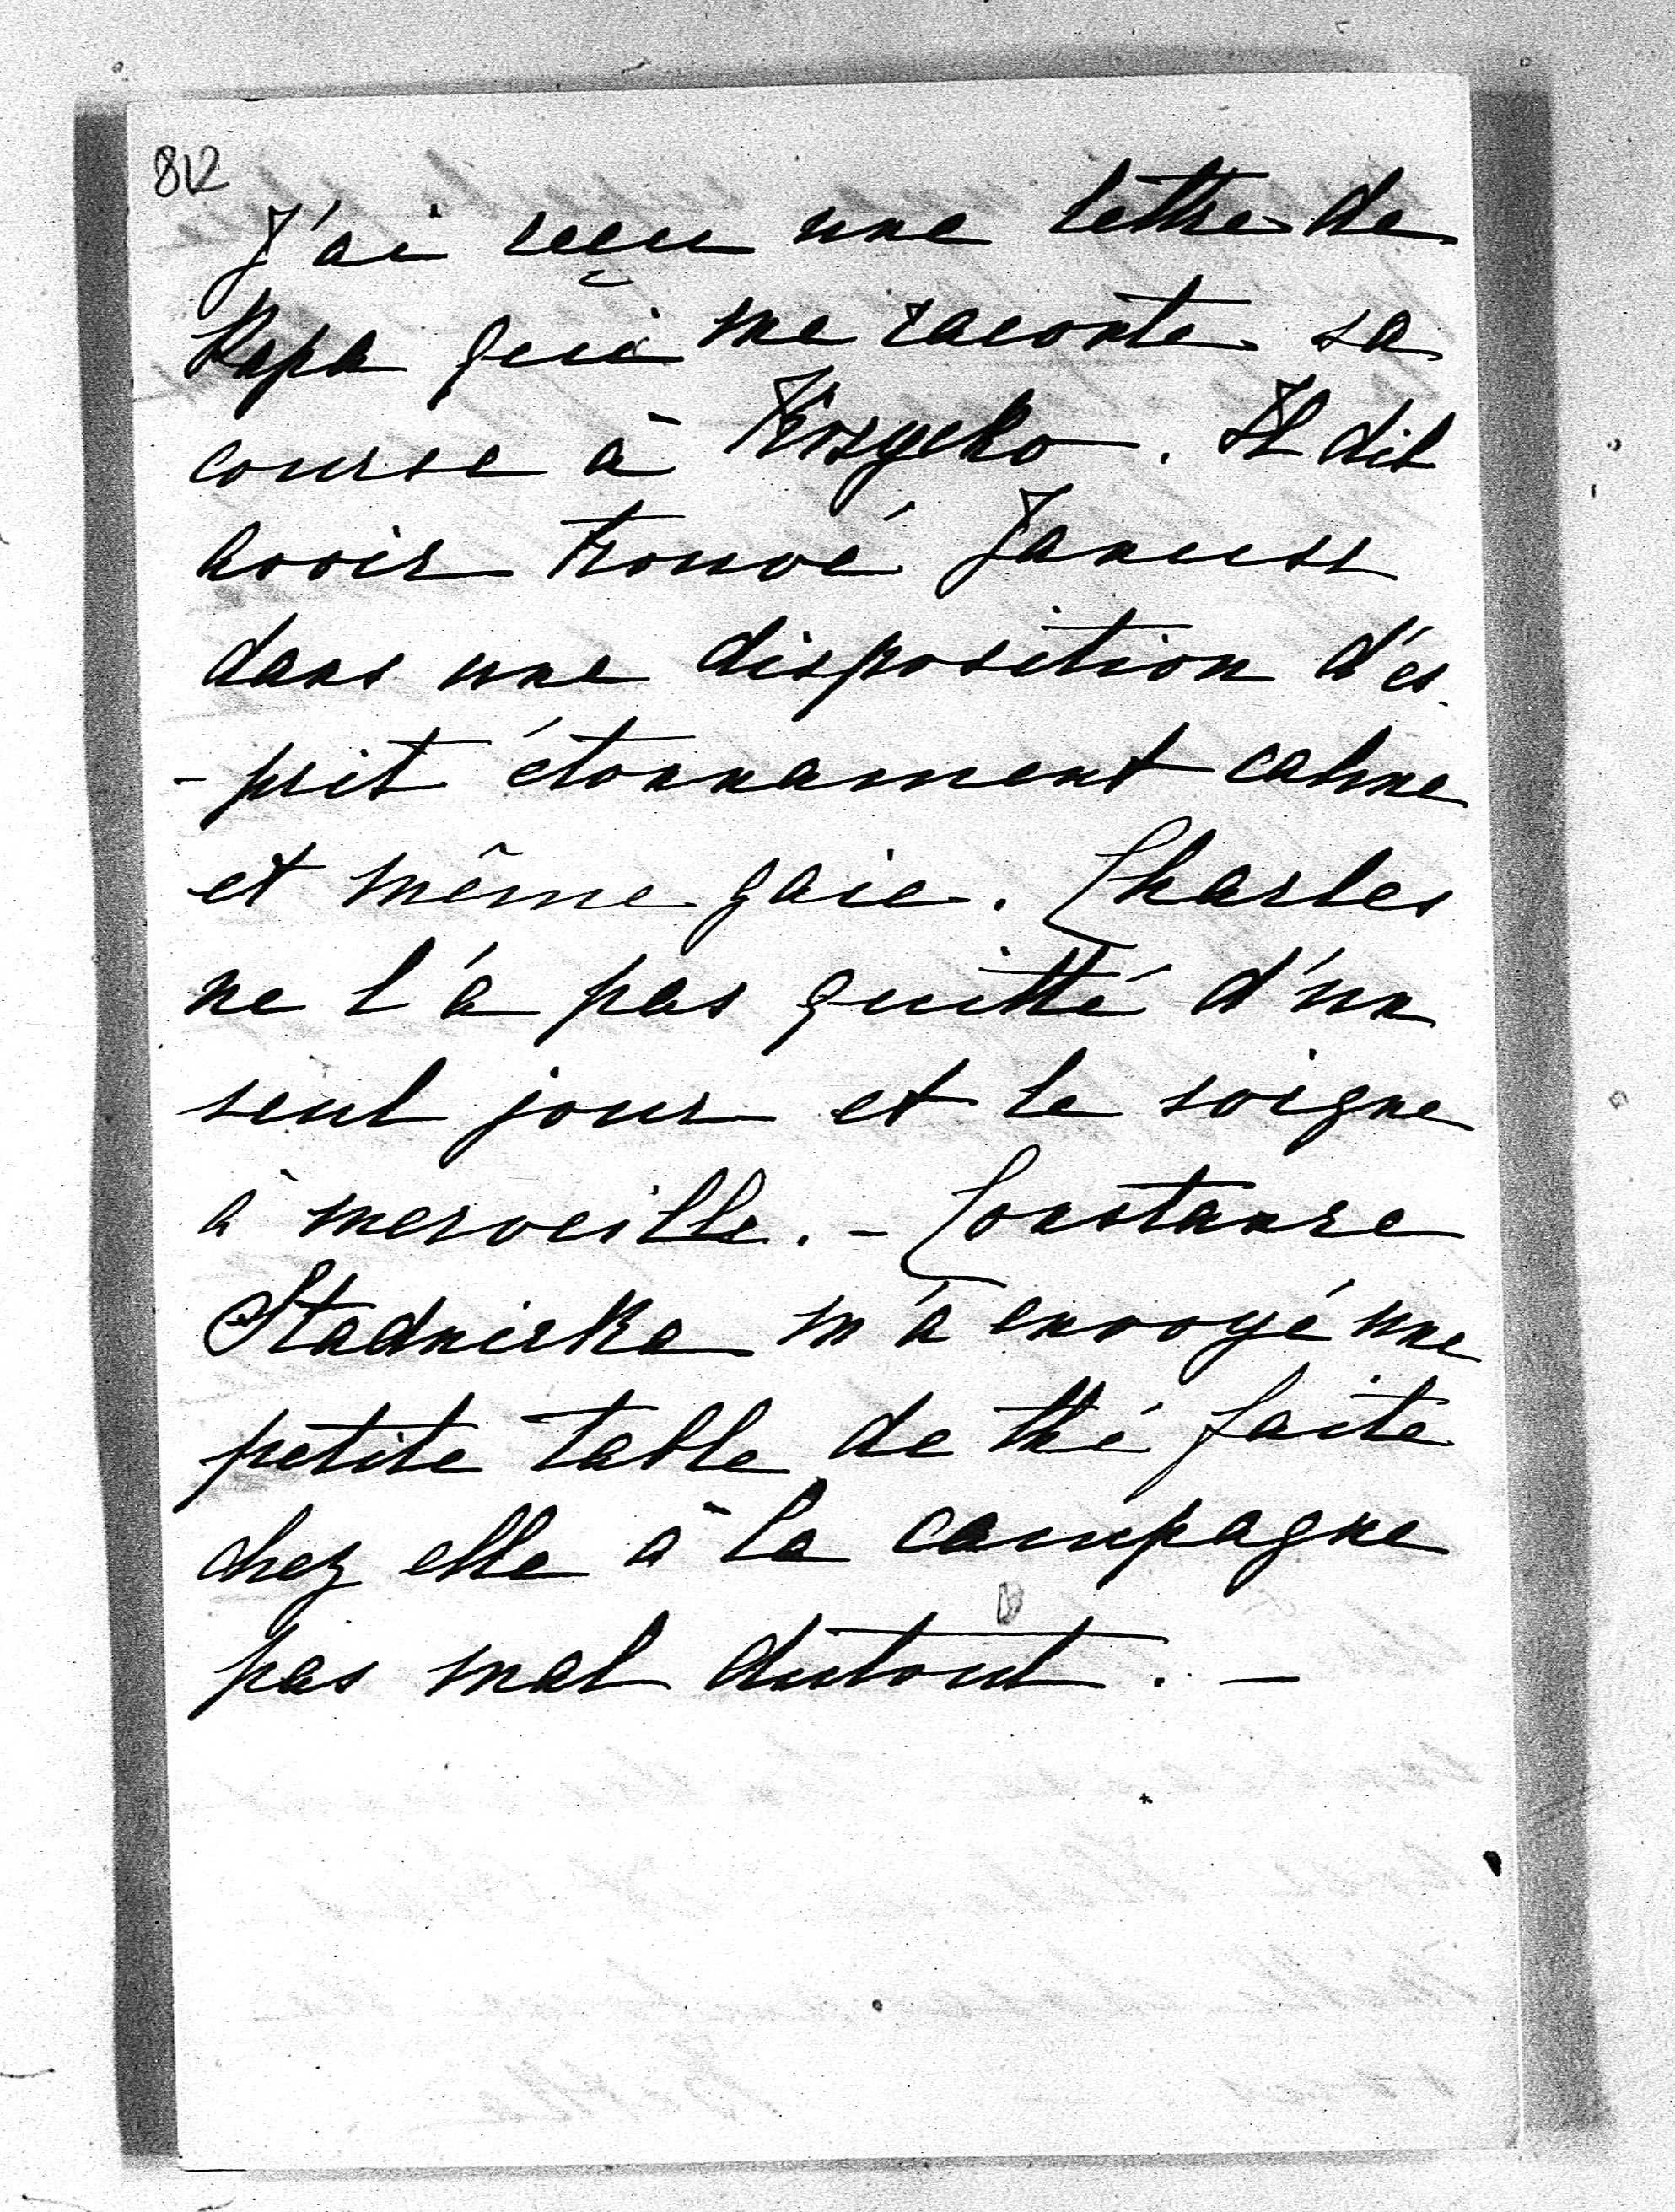 812
J'ai reçu une lettre de
Papa qui me raconte sa
course à Krzycko. Il dit
avoir trouvé Janusz
dans une disposition d'es
-prit étonnament calme
et même gaie. Charles
ne l'a pas quitté d'un
seul jour et le soigne
à merveille. - Constance
Stadnicka m'a envoyé une
petite table de thé faite
chez elle à la campagne
pas mal dutout. -